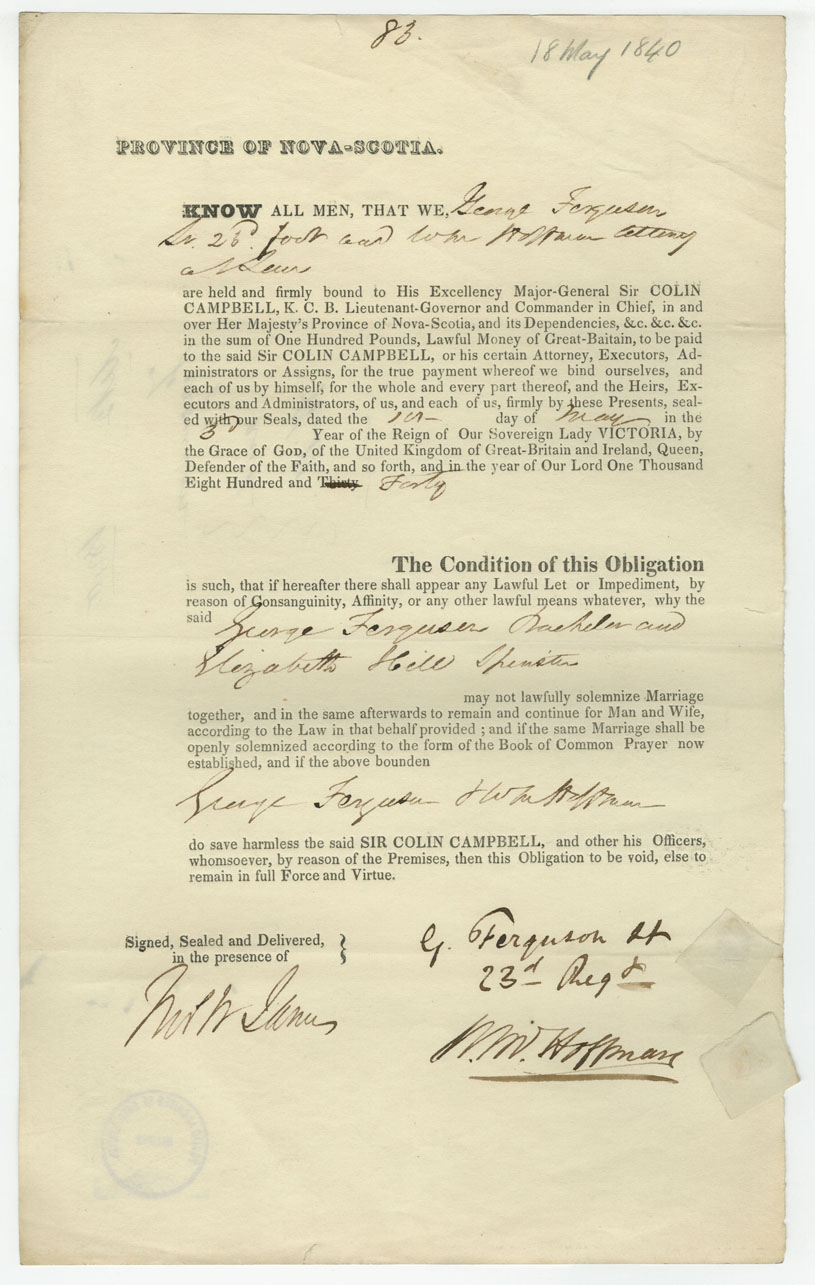 83.
18 May 1840
PROVINCE OF NOVA-SCOTIA.
KNOW ALL MEN, THAT WE, George Ferguson
23d. foot and Wm Hoffman Attorney
at Law
are held and firmly bound to His Excellency Major-General Sir COLIN
CAMPBELL, K. C. B. Lieutenant-Governor and Commander in Chief, in and
over Her Majesty's Province of Nova-Scotia, and its Dependencies, &c. &c. &c.
in the sum of One Hundred Pounds, Lawful Money of Great-Baitain, to be paid
to the said Sir COLIN CAMPBELL, or his certain Attorney, Executors, Ad-
ministrators or Assigns, for the true payment whereof we bind ourselves, and
each of us by himself, for the whole and every part thereof, and the Heirs, Ex-
ecutors and Administrators, of us, and each of us, firmly by these Presents, seal-
ed with our Seals, dated the day of May in the
3d Year of the Reign of Our Sovereign Lady VICTORIA, by
the Grace of GOD, of the United Kingdom of Great-Britain and Ireland, Queen,
Defender of the Faith, and so forth, and in the year of Our Lord One Thousand
Eight Hundred and Thirty Forty
The Condition of this Obligation
is such, that if hereafter there shall appear any Lawful Let or Impediment, by
reason of Consanguinity, Affinity, or any other lawful means whatever, why the
said George Ferguson Bachelor and
Elizabeth Hill Spinster
may not lawfully solemnize Marriage
together, and in the same afterwards to remain and continue for Man and Wife,
according to the Law in that behalf provided ; and if the same Marriage shall be
openly solemnized according to the form of the Book of Common Prayer now
established, and if the above bounden
George Ferguson & Wm Hoffman
do save harmless the said SIR COLIN CAMPBELL, and other his Officers,
whomsoever, by reason of the Premises, then this Obligation to be void, else to
remain in full Force and Virtue.
Signed, Sealed and Delivered, }
in the presence of
G. Ferguson Lt
23d Regt
W. James
W. Hoffman